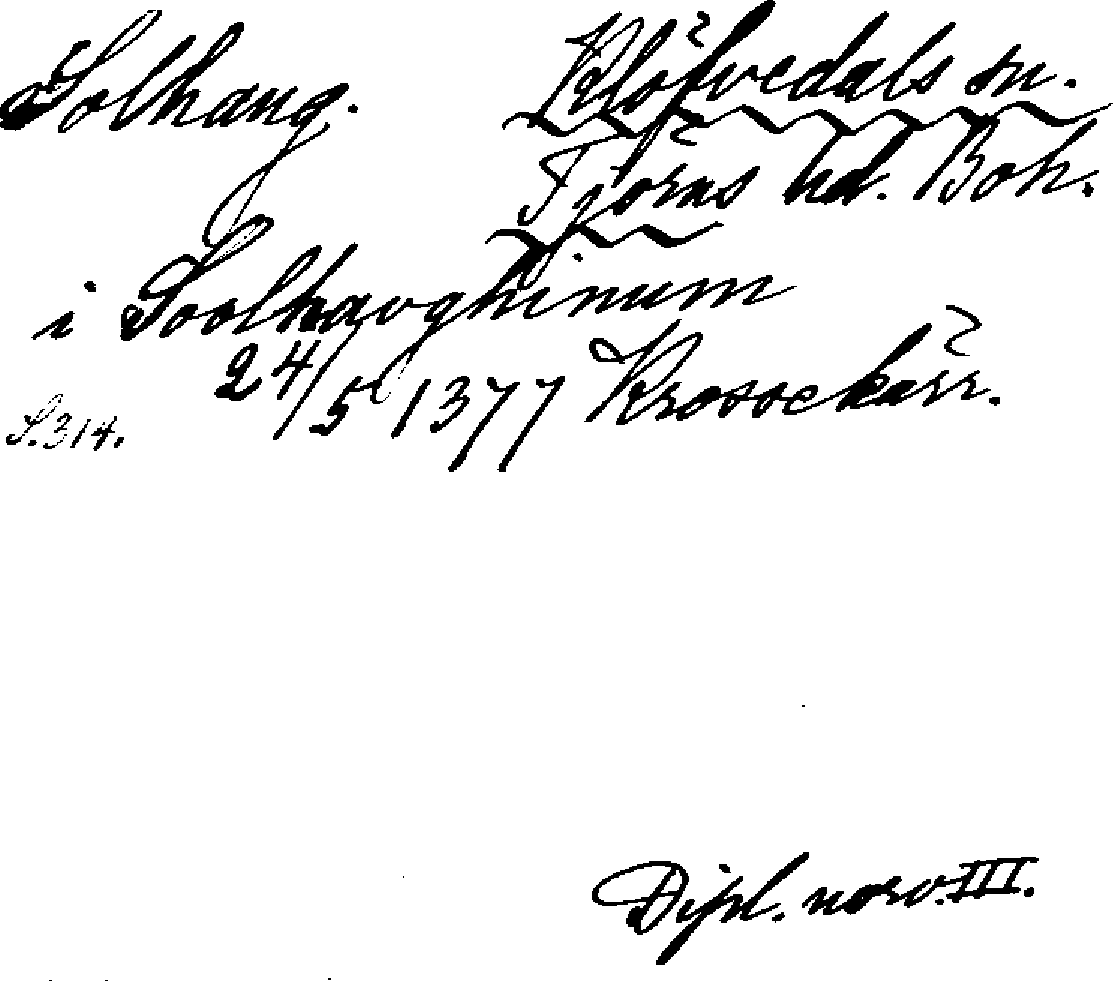 Solhaug. Klöfvedals sn.
Tjörns hd. Boh.
i Soolhavghinum
24/5 1377 Krossekärr.
S. 314.
Dipl. norv. III.